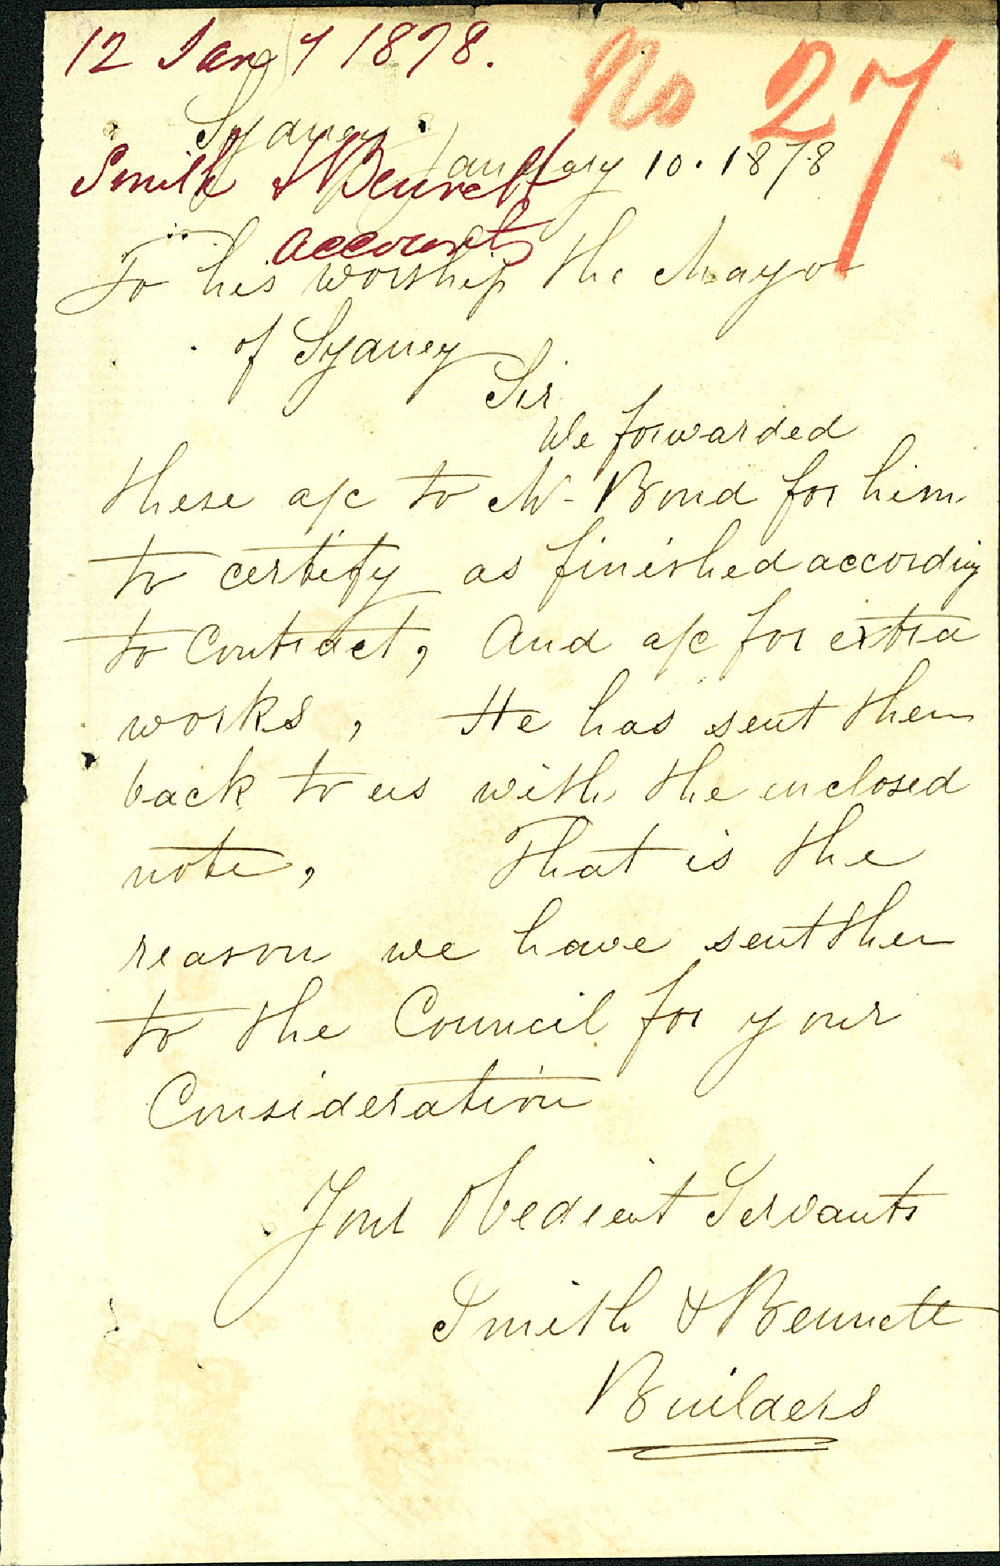 12 Jany 1878.
No 27.
Sydney
January 10. 1878
Smith & Bennett
accounts
To his worship the Mayor
of Sydney
Sir
We forwarded
these a/c to Mr Bond for him
to certify as finished according
to Contract, And a/c for extra
works, He has sent them
back to us with the enclosed
note, That is the
reason we have sent them
to the Council for your
Consideration
Your Obedient Servants
Smith & Bennett
Builders